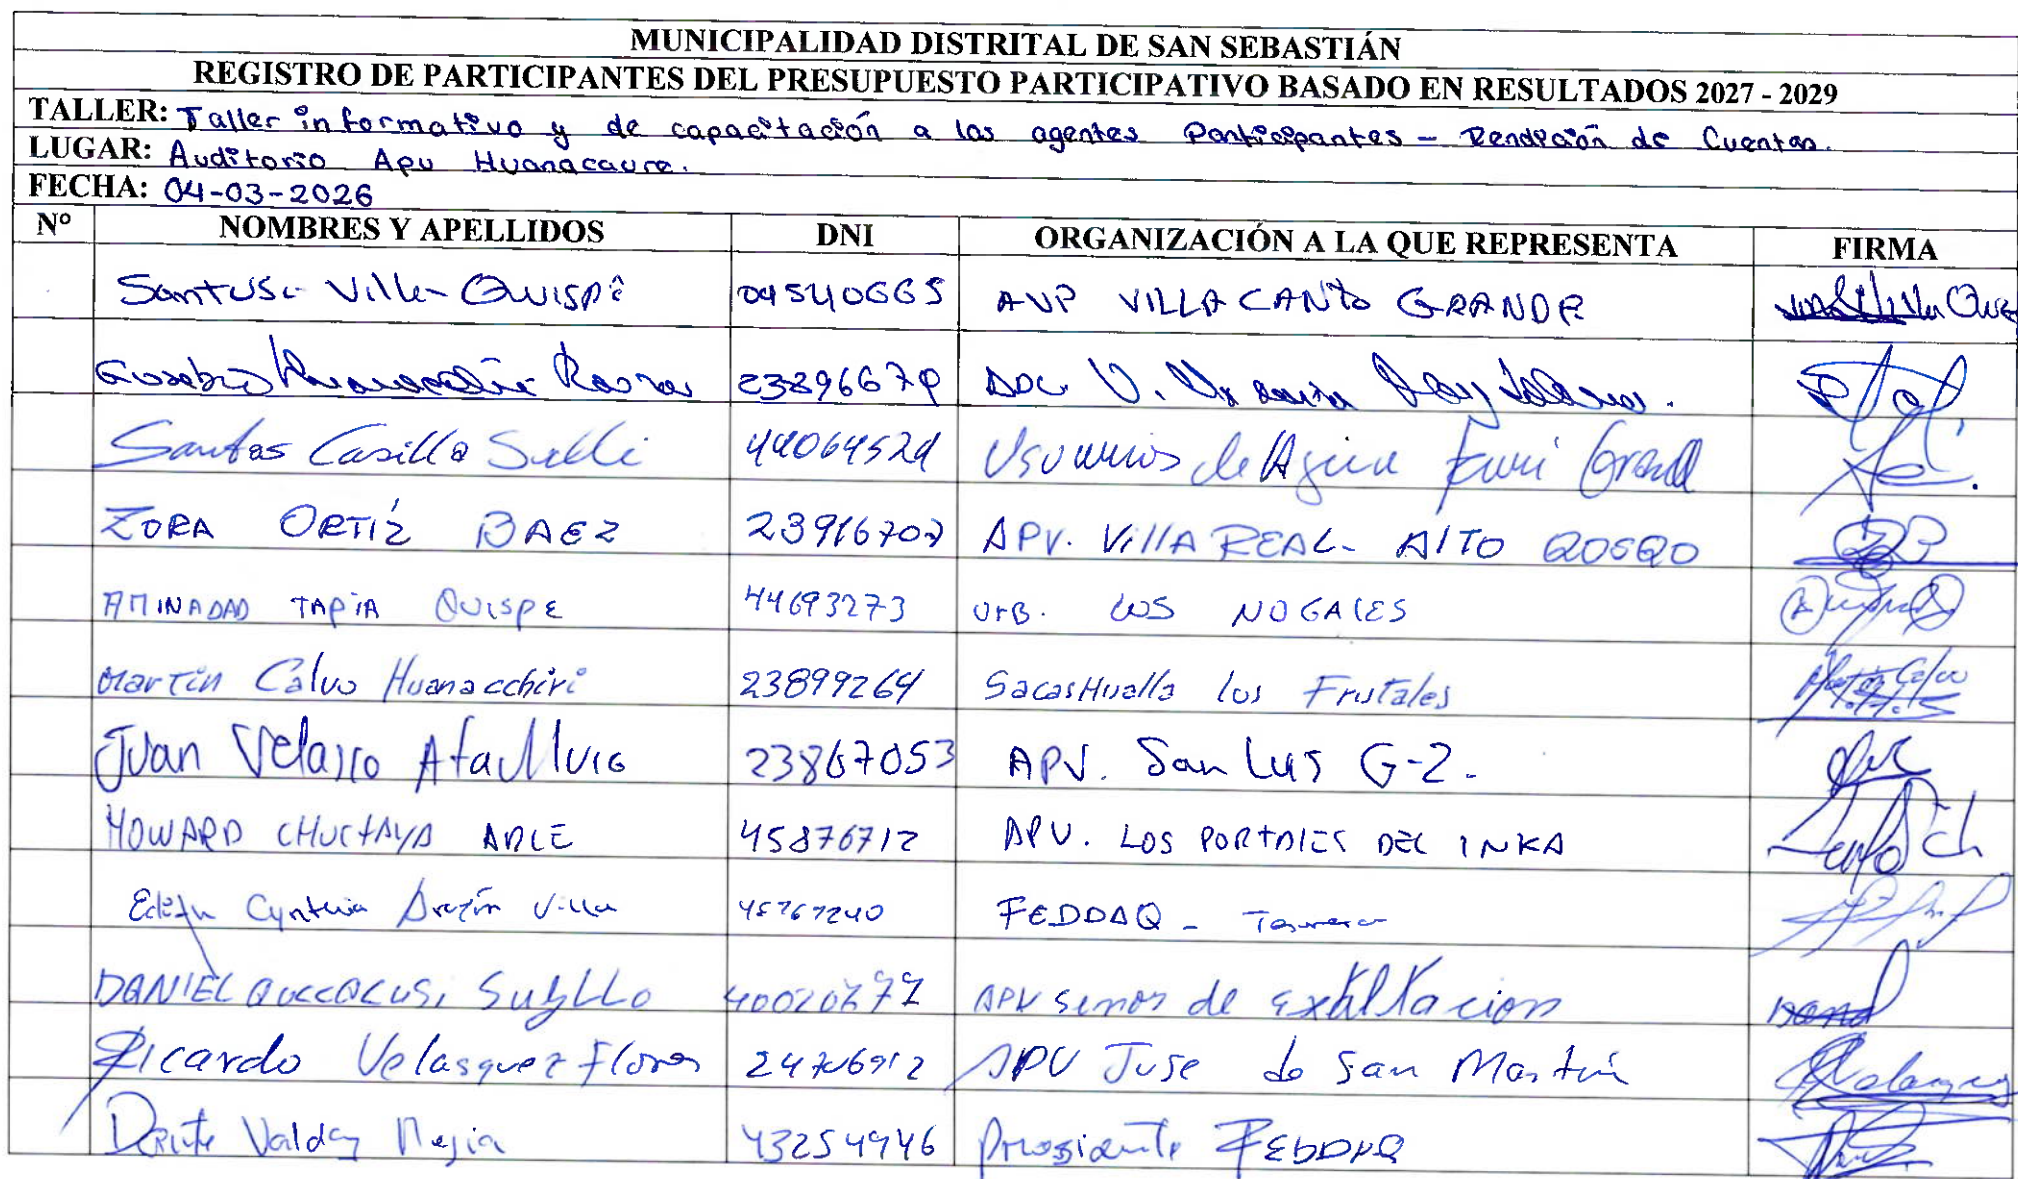 MUNICIPALIDAD DISTRITAL DE SAN SEBASTIÁN
REGISTRO DE PARTICIPANTES DEL PRESUPUESTO PARTICIPATIVO BASADO EN RESULTADOS 2027 - 2029
TALLER: Taller informativo y de capacitación a los agentes Participantes - Rendición de Cuentas.
LUGAR: Auditorio Apu Huanacaure.
FECHA: 04-03-2026
N° NOMBRES Y APELLIDOS DNI ORGANIZACIÓN A LA QUE REPRESENTA FIRMA
Santusa Villa Quispe 09540665 AVP VILLA CANTO GRANDE
23896679
Santos Casilla 44064524 Usuarios de Agua
ZORA ORTIZ BAEZ 23916707 APV. VillA REAL - AlTO QOSQO
AMINADAD TAPIA QUISPE 44693273 UrB. LOS NOGALES
Martin Calvo Huanacchiri 23899264 SacasHualla los Frutales Martin Calvo
Juan Velasco Ataulluco 23867053 APV. San Luis G-2.
HOWARD CHUCTAYA 45876712 APV. LOS PORTALES DEL INKA
Edith Cynthia Villa 45767240 FEDDAQ -
DANIEL 40020677 APV señor de Exaltacion
Ricardo Velasquez Flores 24706912 APV Jose de San Martin
Valdez Mejia 43254946 Presidente FEDDAQ